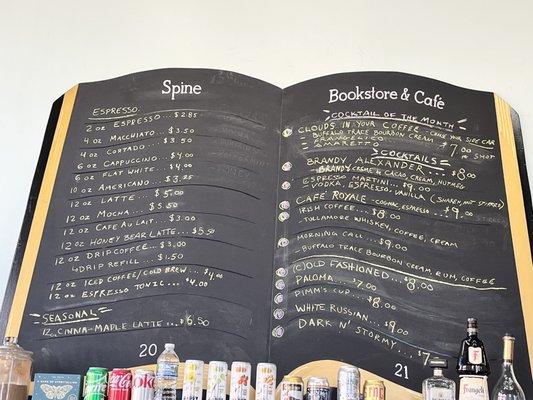 Spine
ESPRESSO:
2 oz ESPRESSO... $2.85
4 oz MACCHIATO $3.50
4 oz CORTADO... $3.50
6 oz CAPPUCCINO... $4.00
6 oz FLAT WHITE... $4.00
10 oz AMERICANO... $3.25
12 oz LATTE... $5.00
12 oz MOCHA... $5.50
12 oz CAFE AU LAIT... $3.00
12 oz HONEY BEAR LATTE... $5.50
12 oz DRIP COFFEE... $3.00
DRIP REFILL... $1.50
12 oz ICED COFFEE/COLD BREW... $4.00
12 oz ESPRESSO TONIC... $4.00
SEASONAL
12 oz CINNA-MAPLE LATTE... $6.50
20
Bookstore & Café
COCKTAIL OF THE MONTH
CLOUDS IN YOUR COFFEE
BUFFALO TRACE BOURBON CREAM
FRANGELICO
AMARETTO
$7.00
SHOT
COCKTAILS
BRANDY ALEXANDER... $8.00
BRANDY, CREME de CACAO, CREAM, NUTMEG
ESPRESSO MARTINI... $9.00
VODKA, ESPRESSO, VANILLA (SHAKEN, NOT STIRRED)
CAFÉ ROYALE - COGNAC, ESPRESSO... $9.00
IRISH COFFEE... $8.00
TULLAMORE WHISKEY, COFFEE, CREAM
MORNING CALL... $9.00
BUFFALO TRACE BOURBON CREAM, RUM, COFFEE
(C)OLD FASHIONED... $8.00
PALOMA... $7.00
PIMM'S CUP... $8.00
WHITE RUSSIAN... $9.00
DARK N' STORMY... $7.00
21
Coke
Frangelico